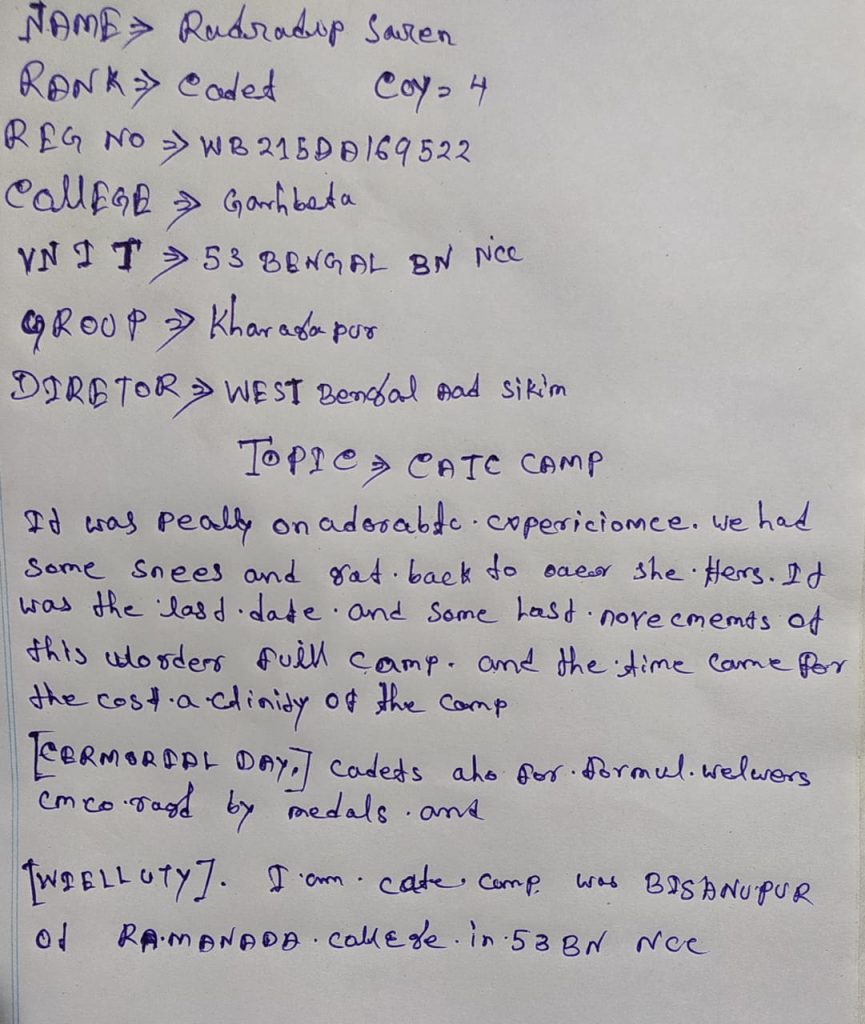 NAME ⇒ Rudradip Saren
RANK ⇒ Cadet Coy = 4
REG NO ⇒ WB21SDA169522
COllEGE ⇒ Garhbeta
UNIT ⇒ 53 BENGAL BN NCC
GROUP ⇒ Kharagapur
DIRETOR ⇒ WEST Bengal and Sikim
TOPIC ⇒ CATC CAMP
It was really an adorabtc. copericiomce. we had
some snees and gat. back to she. Hers. It
was the last. date. and some last. novecments of
this worders full camp. and the time came for
the cost. a ctinity of the camp
[CERMORIAL DAY.] Cadets aho for. formul. welwers
cnco. ragd by medals. and
[WIELLUTY]. I am. catc. camp. was BISANUPUR
of RA.MANADA. collEge. in 53 BN NCC